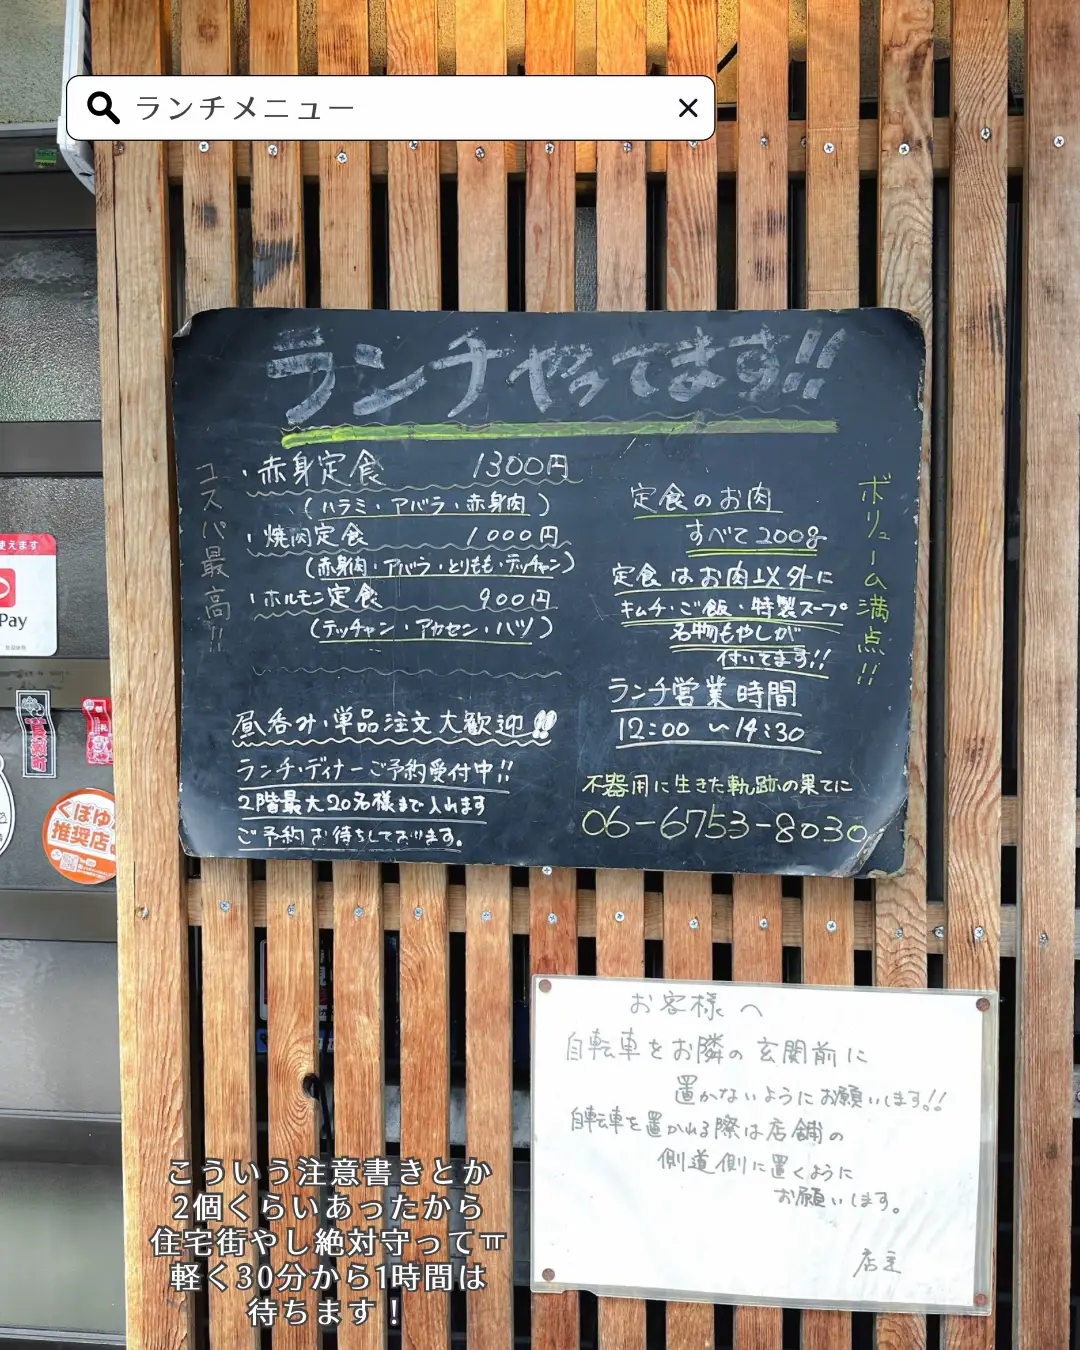 ランチメニュー
ランチやってます!!
コスパ最高!!
・赤身定食 1300円
(ハラミ・アバラ・赤身肉)
・焼肉定食 1000円
(赤身肉・アバラ・とりもも・テッチャン)
・ホルモン定食 900円
(テッチャン・アカセン・ハツ)
昼呑み・単品注文大歓迎!!
ランチ・ディナーご予約受付中!!
2階最大20名様まで入れます
ご予約お待ちしております。
定食のお肉
すべて200g
定食はお肉以外に
キムチ・ご飯・特製スープ
名物もやしが
付いてます!!
ボリューム満点!!
ランチ営業時間
12:00 〜14:30
不器用に生きた軌跡の果てに
06-6753-8030
使えます
Pay
くぼゆか
推奨店
お客様へ
自転車をお隣の玄関前に
置かないようにお願いします!!
自転車を置かれる際は店舗の
側道側に置くように
お願いします。
店主
こういう注意書きとか
2個くらいあったから
住宅街やし絶対守ってㅠ
軽く30分から1時間は
待ちます！